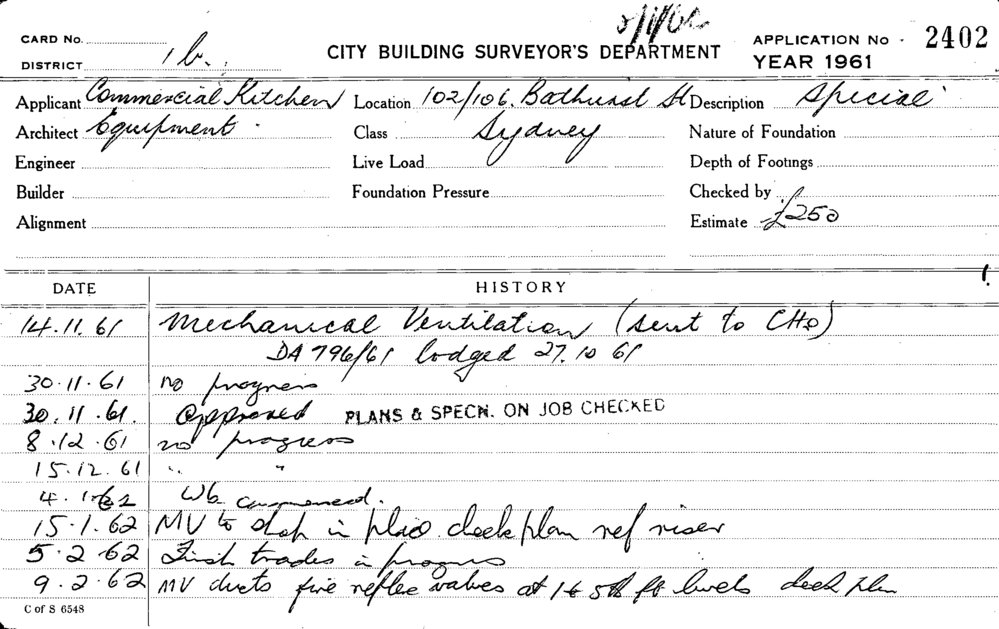 CARD No.
DISTRICT 1b.
CITY BUILDING SURVEYOR'S DEPARTMENT
APPLICATION No. 2402
YEAR 1961
Applicant Commercial Kitchen Location 102/106. Bathurst St Description Special
Architect Equipment. Class Sydney Nature of Foundation
Engineer Live Load Depth of Footings
Builder Foundation Pressure Checked by
Alignment Estimate £250
DATE HISTORY
14.11.61 Mechanical Ventilation (sent to CHO)
DA 796/61 lodged 27.10 61
30.11.61 no progress
30.11.61. Approved PLANS & SPECN. ON JOB CHECKED
8.12.61 no progress
15.12.61 " "
4.1.62 Wk commenced.
15.1.62 MV to shop in place check plan ref riser
5.2.62 Finish trades in progress
9.2.62 MV ducts fire valves at levels plan
C of S 6548